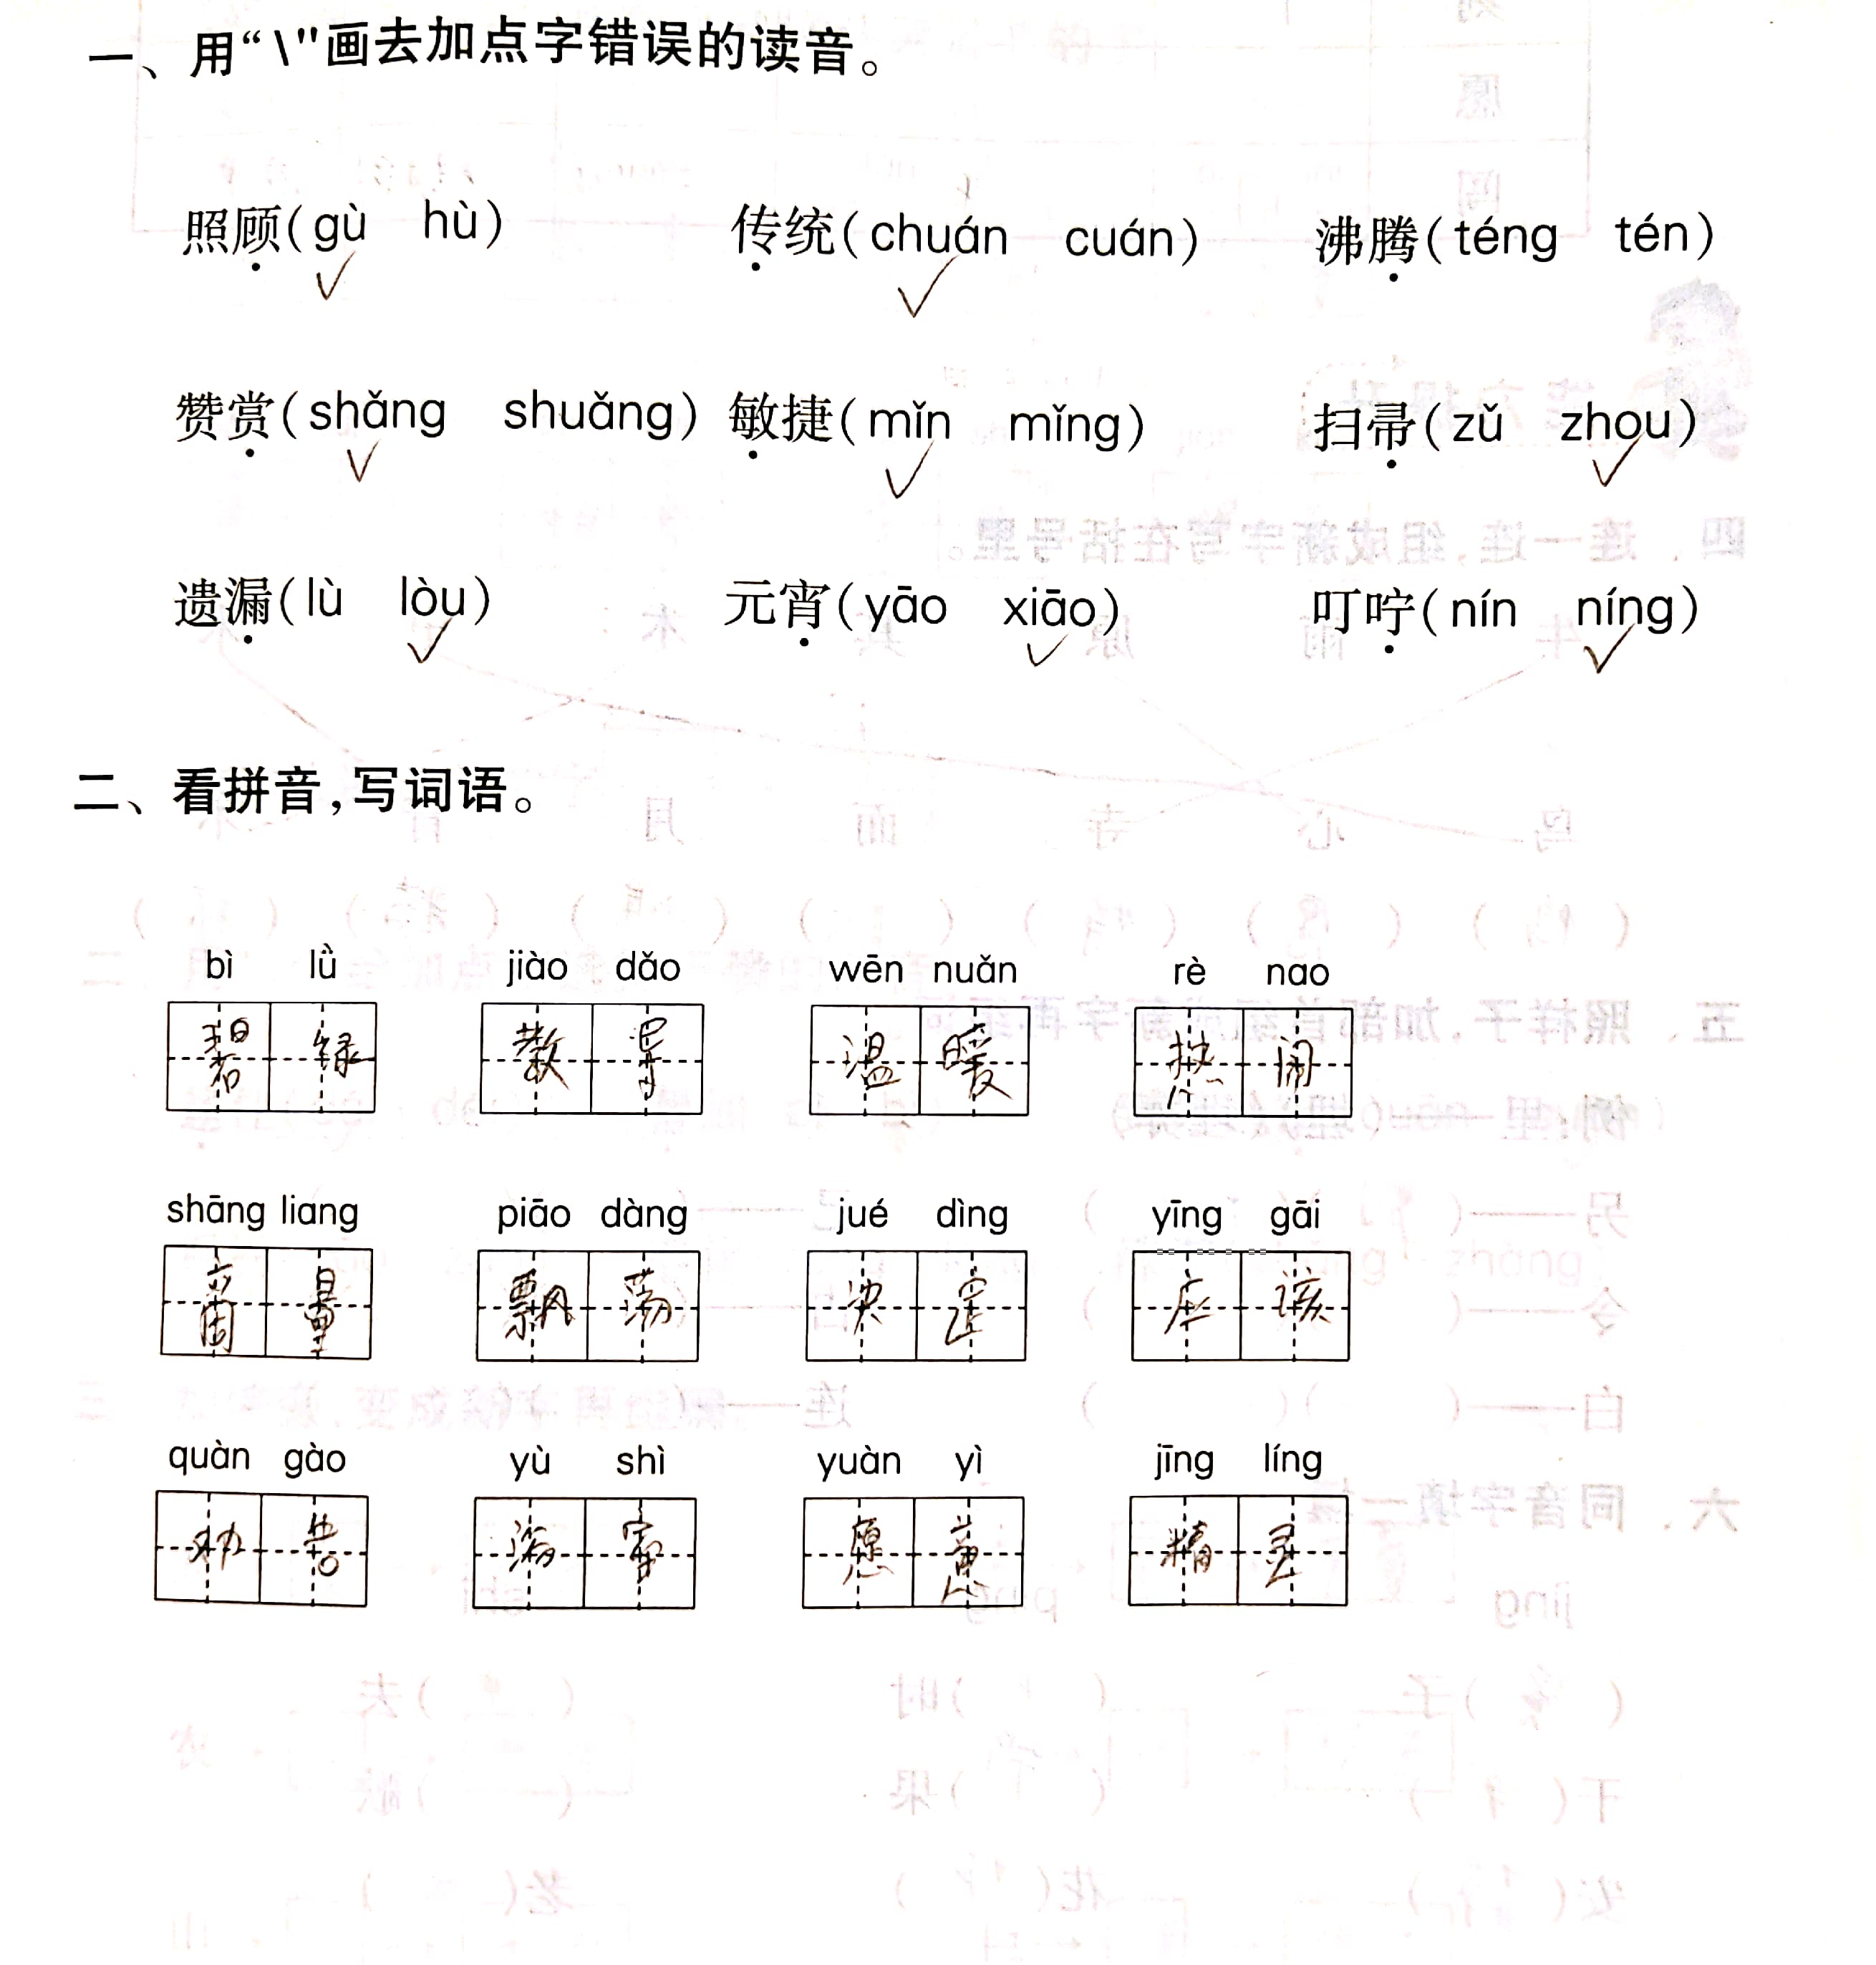 一、用“\"画去加点字错误的读音。
照顾(gù hù) 传统(chuán cuán) 沸腾(téng tén)
√ √
赞赏(shǎng shuǎng) 敏捷(mǐn mǐng) 扫帚(zǔ zhou)
√ √ √
遗漏(lù lòu) 元宵(yāo xiāo) 叮咛(nín níng)
√ √ √
二、看拼音,写词语。
bì lǜ jiào dǎo wēn nuǎn rè nao
碧绿 教导 温暖 热闹
shāng liang piāo dàng jué dìng yīng gāi
商量 飘荡 决定 应该
quàn gào yù shì yuàn yì jīng líng
劝告 浴室 愿意 精灵